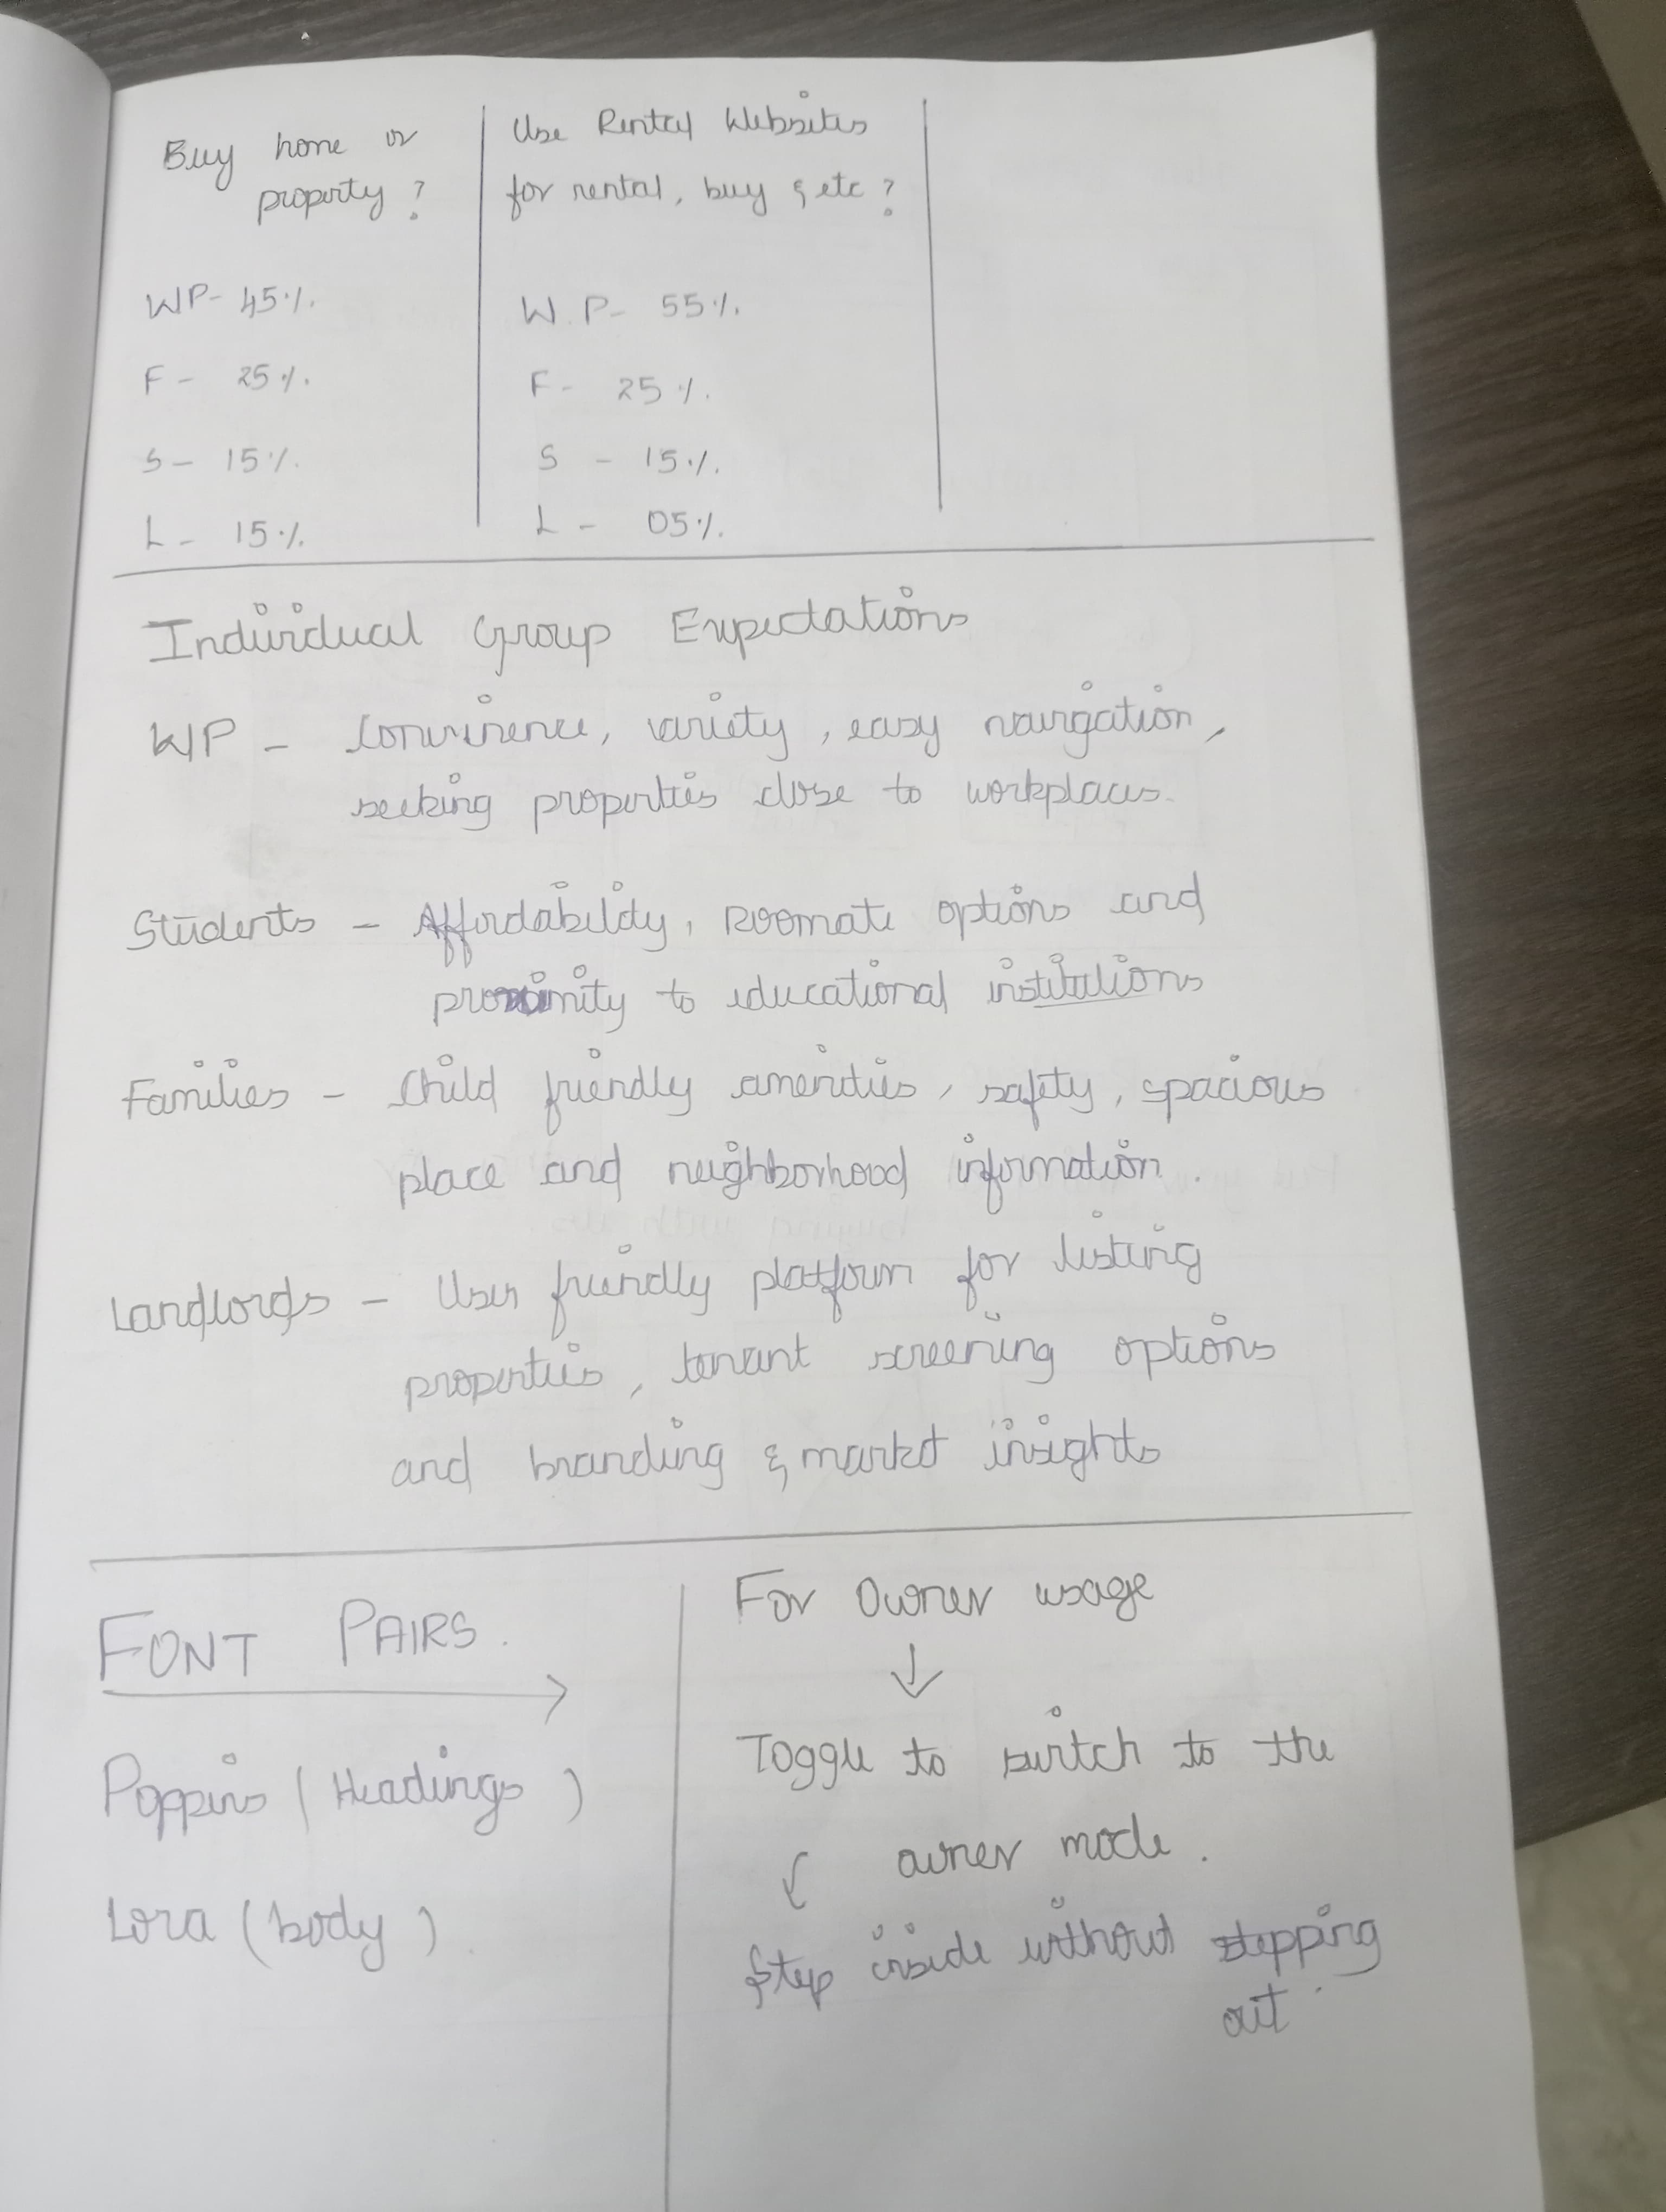 Buy home or
property ?
WP- 45%.
F - 25%.
S - 15%.
L - 15%.
Use Rental Websites
for rental, buy & etc ?
W.P- 55%.
F - 25%.
S - 15%.
L - 05%.
Individual Group Expectations
WP - Convinence, variety, easy navigation,
seeking properties close to workplaces.
Students - Affordability, Roomate options and
proximity to educational institutions
Families - Child friendly amenities, safety, spacious
place and neighborhood information.
Landlords - User friendly platform for listing
properties, tenant screening options
and branding & market insights
FONT PAIRS.
Poppins (Headings)
Lora (body).
For Owner usage
↓
Toggle to switch to the
owner mode.
Step inside without stepping
out.